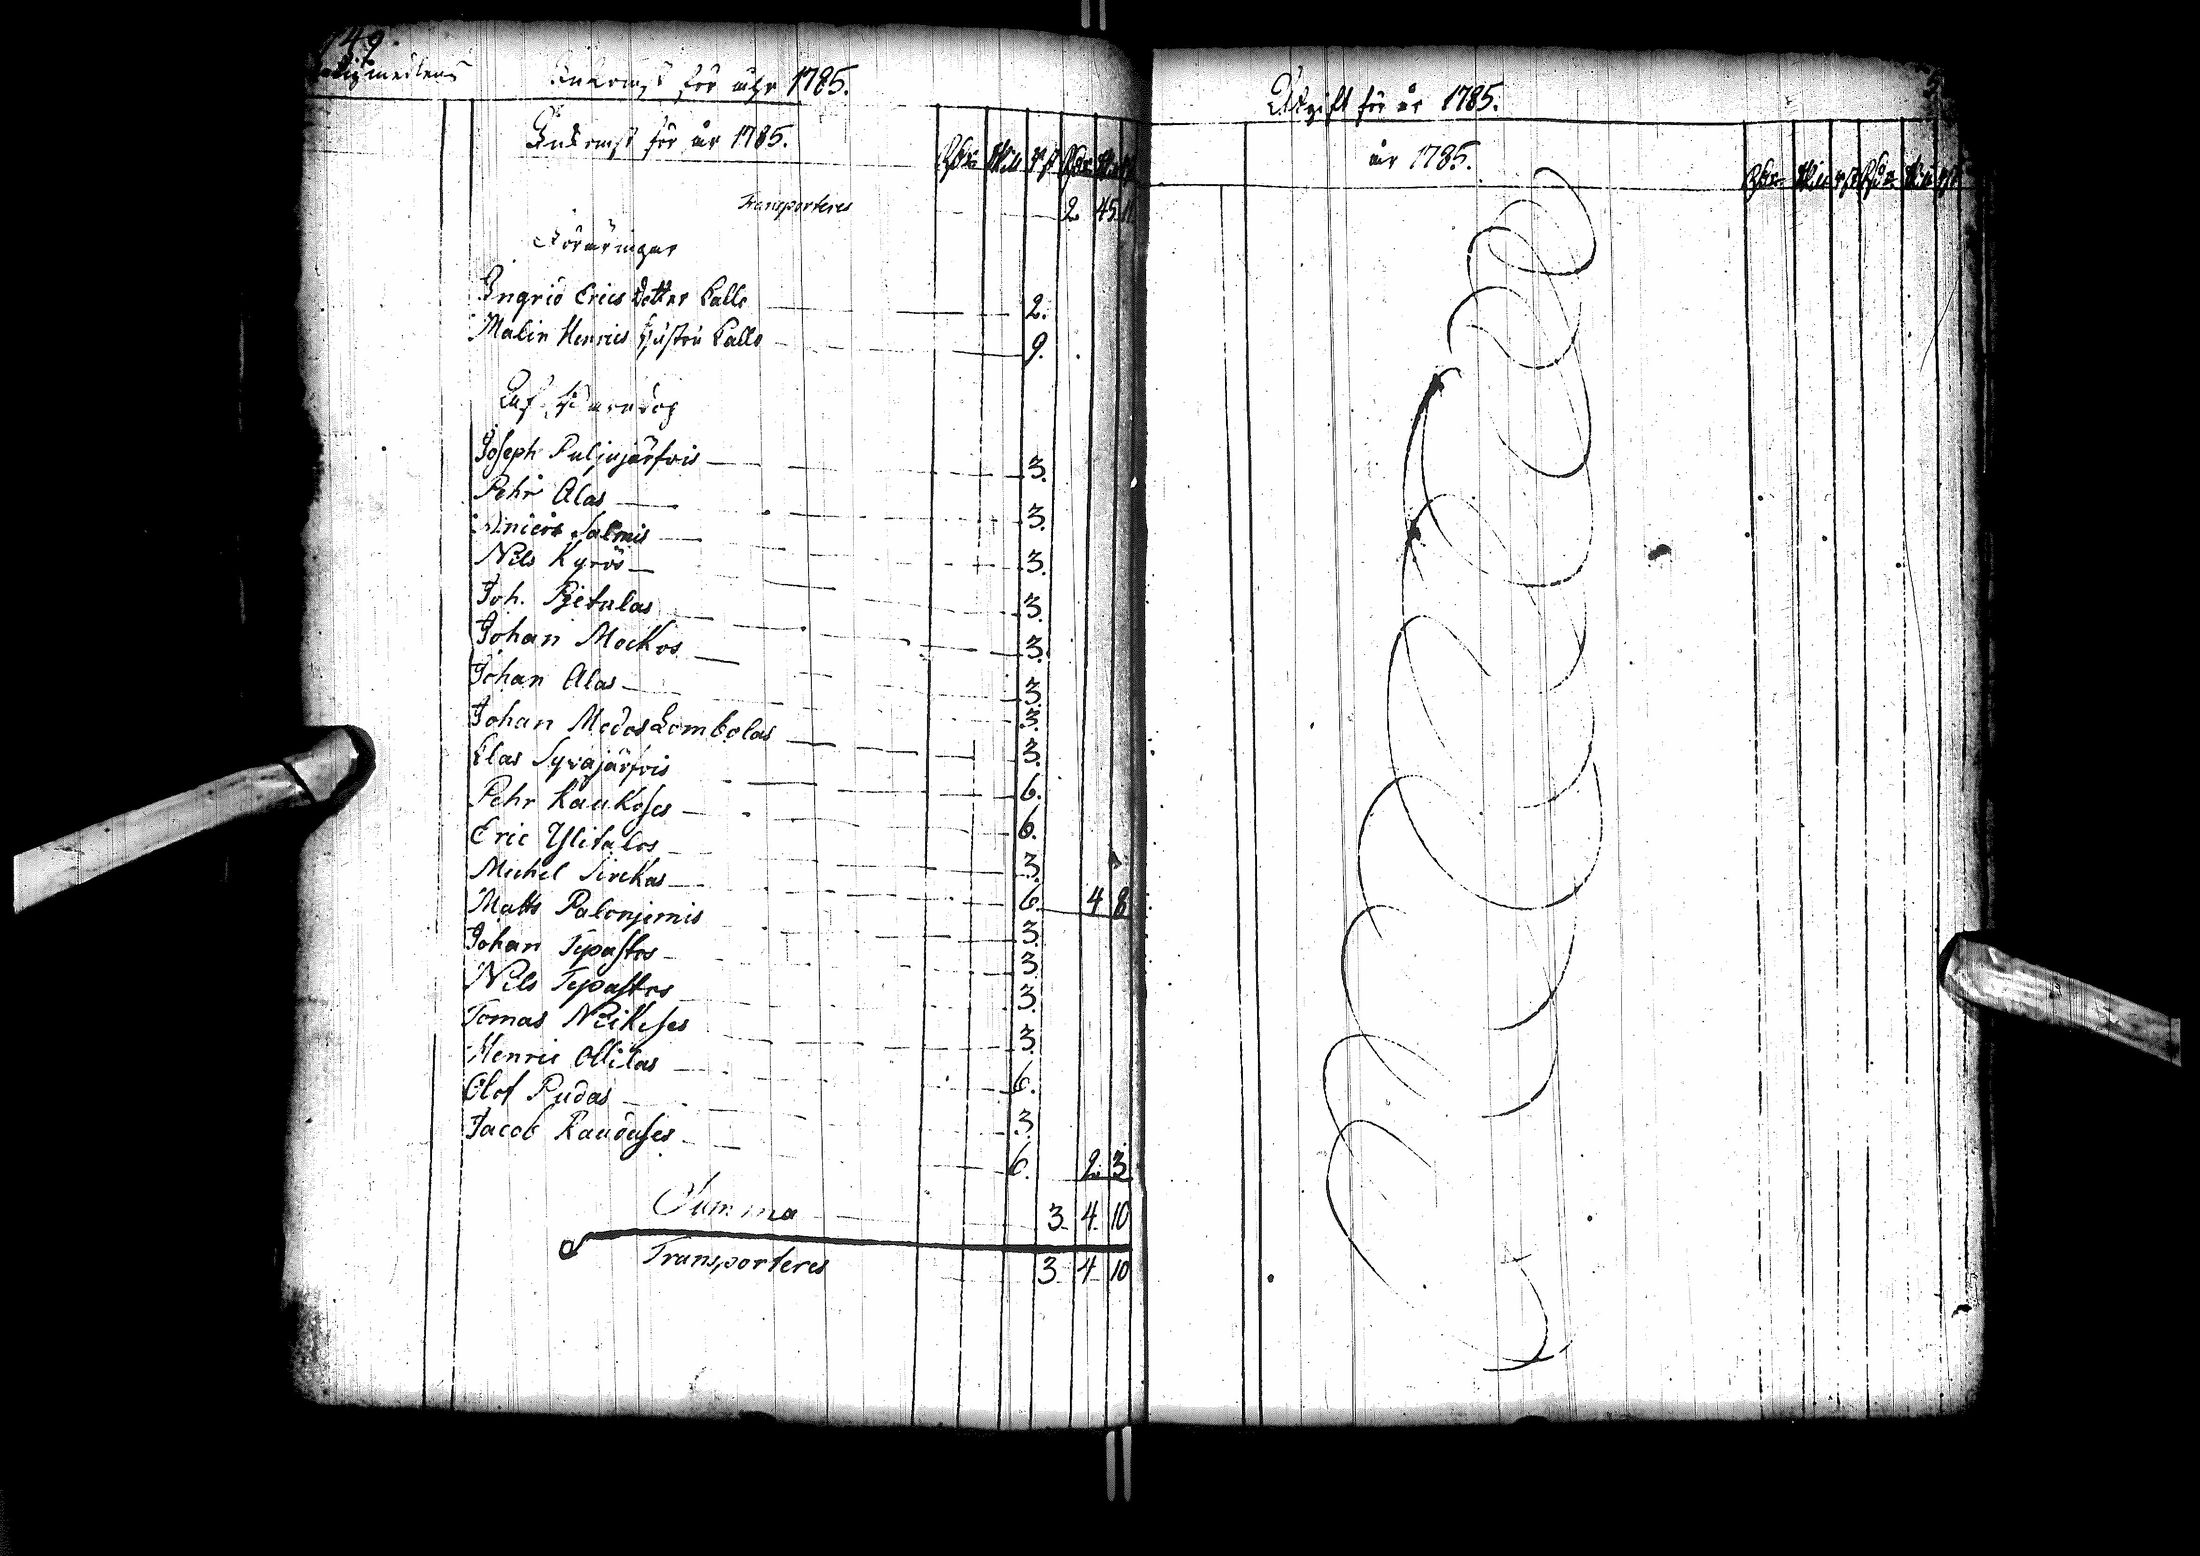 149.
medlens Inkomst för åhr 1785.
Inkomst för år 1785.
Rdr Skill rst Rdr Skill rst
Transporteres 2. 45. 11
Föräringar
Ingrid Erics Dotter Kalle 2.
Malin Henrics Hustru Kalle 9.
Joseph Puljujärfvis 3.
Pehr Alas 3.
Salmis 3.
Nils Kyrös 3.
Joh. Pietulas 3.
Johan Mockos 3.
Johan Alas 3.
Johan Medos Lombolas 3.
Elas Syväjärfvis 6.
Pehr Kaukoses 6.
Eric Ylitalos 3.
Michel Sirckas 6. 4 8
Matts Palonjemis 3.
Johan Tepastos 3.
Nils Tepastos 3.
Tomas Neikeses 3.
Henric Ollilas 6.
Olof Pudas 3.
Jacob Rauduses 6. 2. 3.
Summa 3. 4. 10
Transporteres 3. 4 10
Utgift för år 1785.
år 1785.
Rdr Skill rst Rdr Skill rst